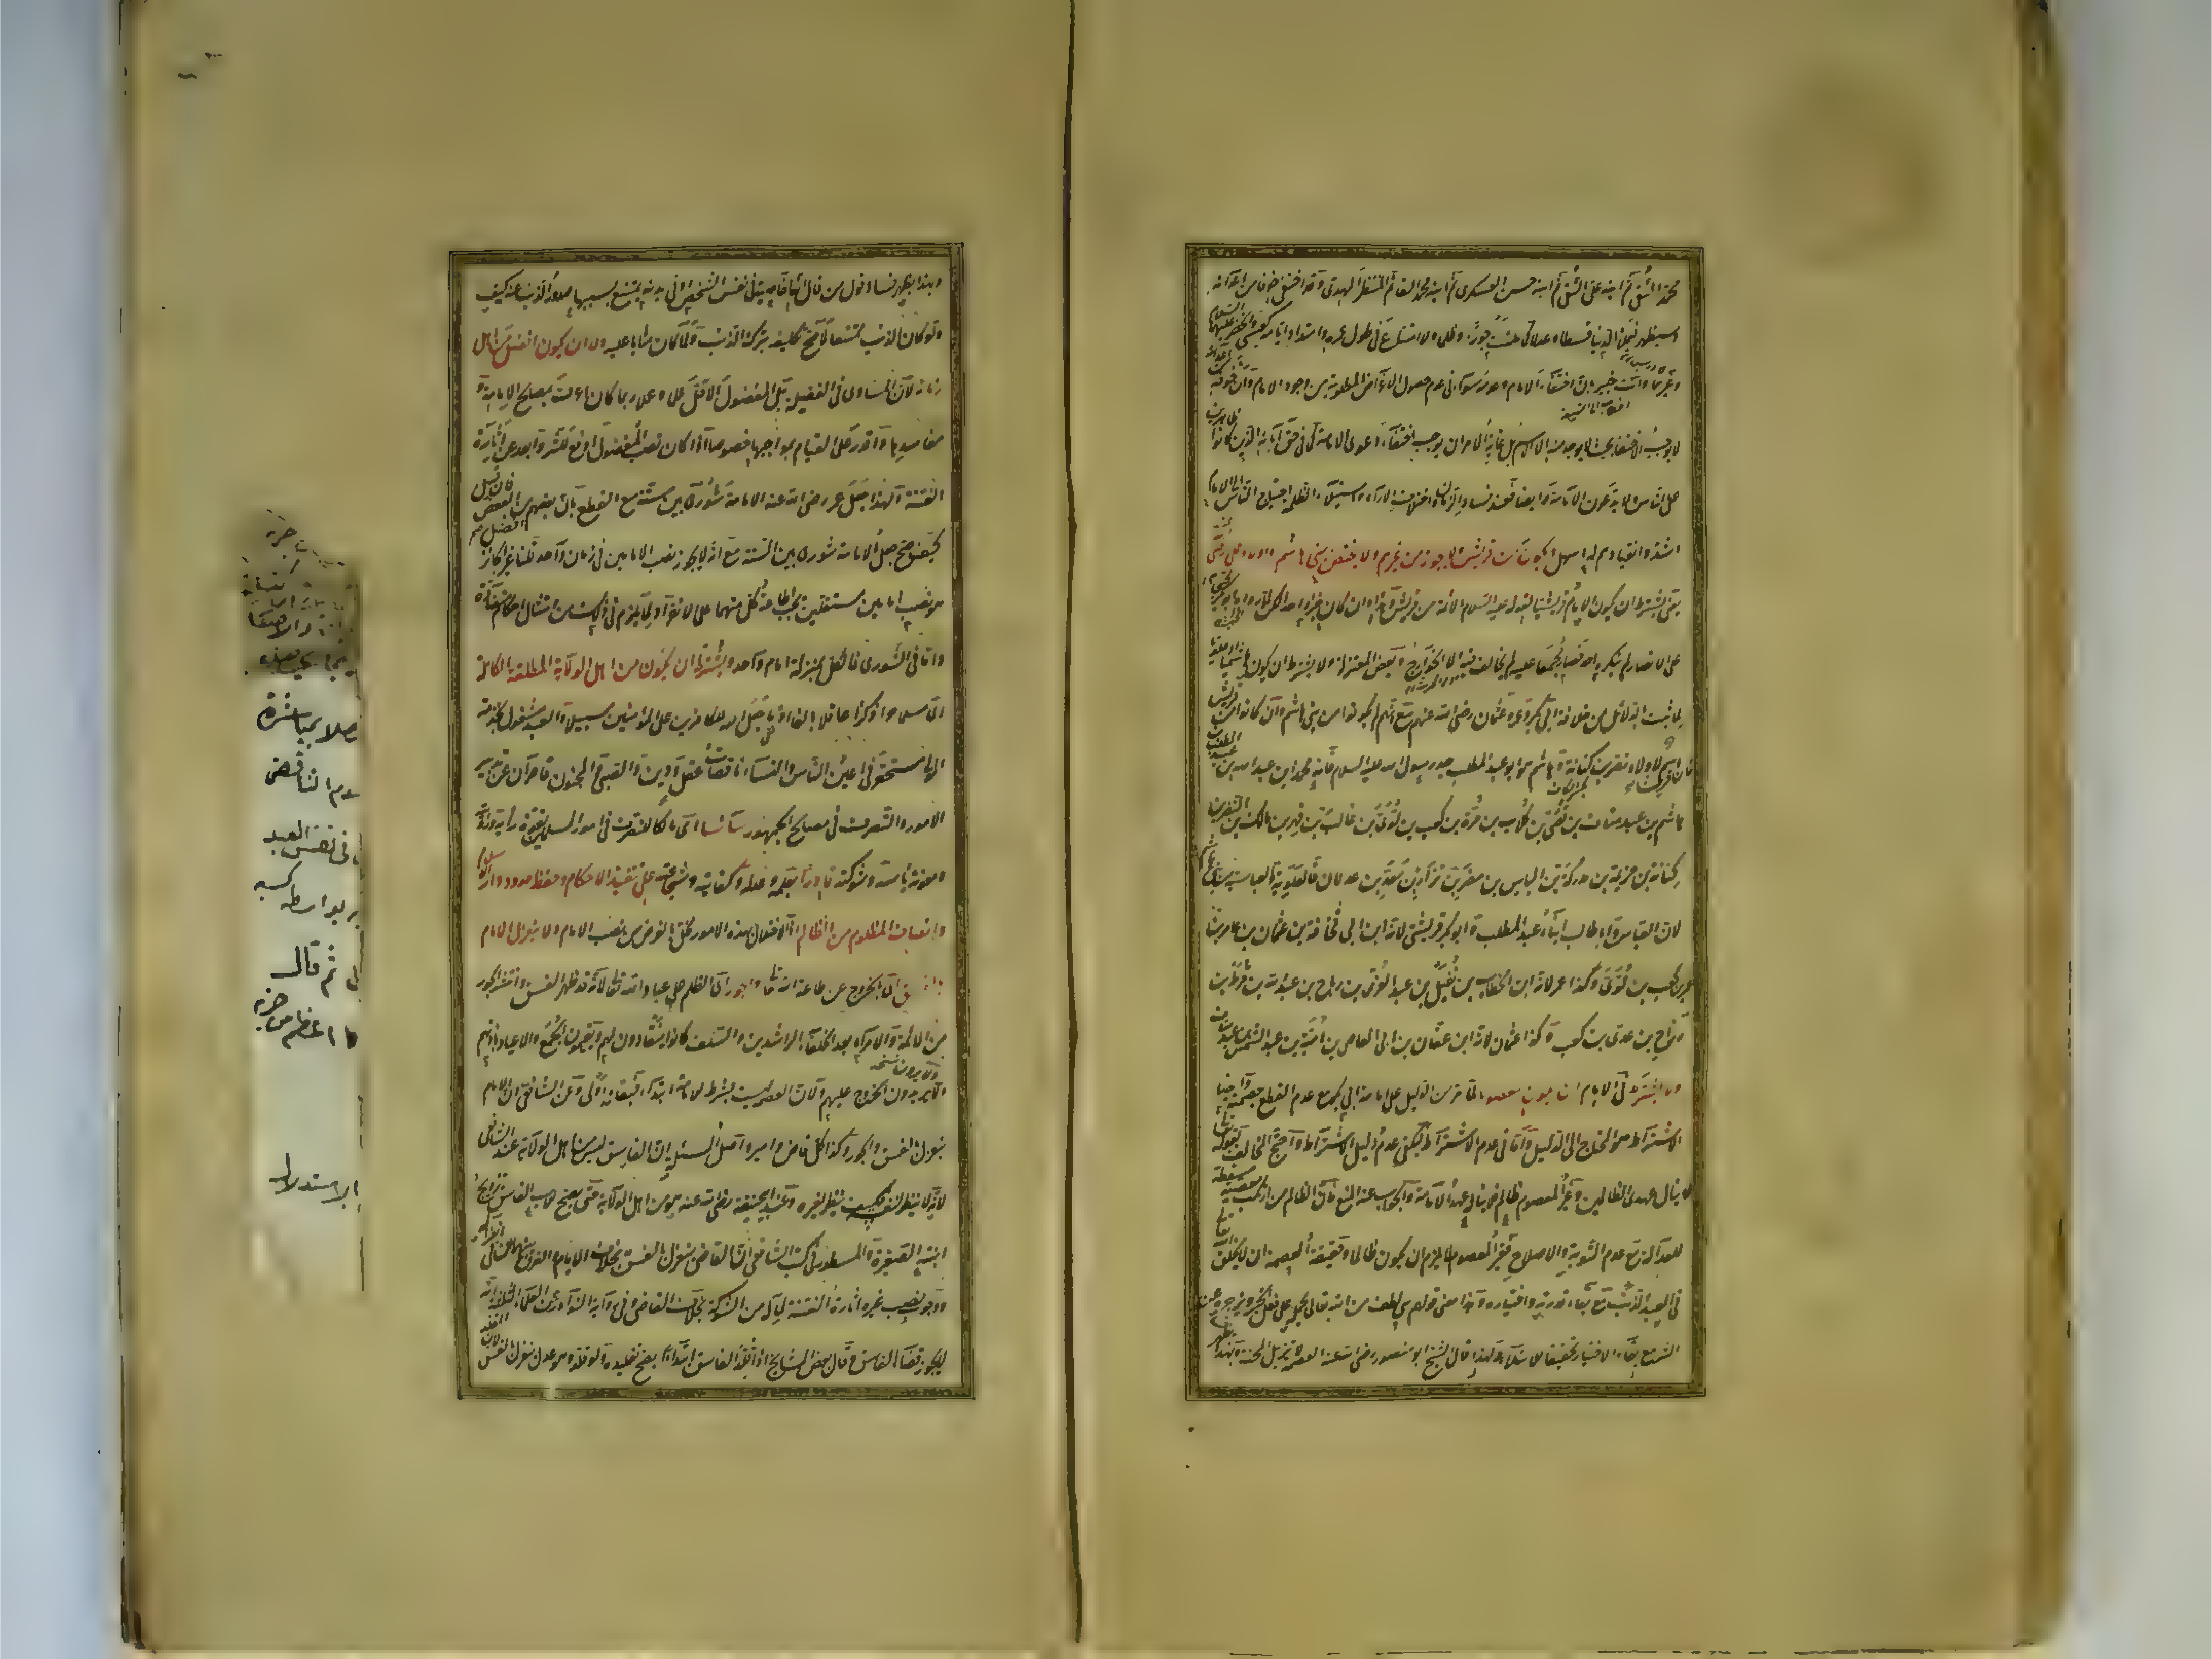 محمد التقي ثم ابنه علي النقي ثم ابنه حسن العسكري ثم ابنه محمد القائم المنتظر المهدي وقد اختفى خوفا من اعدائه
وسيظهر فيملأ الدنيا قسطا وعدلا كما ملئت جورا وظلما ولا امتناع في طول عمره وامتداد ايامه كعيسى والخضر عليهما السلام
وغيرهما وانت خبير بان اختفاء الامام وعدمه سواء في عدم حصول الاغراض المطلوبة من وجود الامام وان خوفه
لا يوجب الاختفاء بحيث لا يوجد منه الا الاسم بل غاية الامر ان يوجب اختفاء دعوى الامامة كما في حق آبائه الذين كانوا
على الناس ولا يدعون الامامة وايضا فعند فساد الزمان واختلاف الاراء واستيلاء الظلمة احتياج الناس الى الامام
اشد وانقيادهم له اسهل ويكون من قريش ولا يجوز من غيرهم ولا يختص ببني هاشم واولاد علي رضي
يعني يشترط ان يكون الامام قريشيا لقوله عليه السلام الائمة من قريش وهذا وان كان خبرا واحدا لكن لما رواه ابو بكر
على الانصار لم ينكره احد فصار مجمعا عليه لم يخالف فيه الا الخوارج وبعض المعتزلة ولا يشترط ان يكون هاشميا او علويا
لما ثبت بالدلائل من خلافة ابي بكر وعمر وعثمان رضي الله عنهم مع انهم لم يكونوا من بني هاشم وان كانوا من قريش
فان قريشا اسم لاولاد نضر بن كنانة وهاشم هو ابو عبد المطلب جد رسول الله عليه السلام فانه محمد ابن عبد الله بن عبد المطلب
هاشم بن عبد مناف بن قصي بن كلاب بن مرة بن كعب بن لوي بن غالب بن فهر بن مالك بن النضر بن
كنانة بن خزيمة بن مدركة بن الياس بن مضر بن نزار بن معد بن عدنان فالعلوية والعباسية من بني هاشم
لان العباس وابا طالب ابناء عبد المطلب وابو بكر قريشي لانه ابن ابي قحافة بن عثمان بن عامر بن
عمرو بن كعب بن لوي وكذا عمر لانه ابن الخطاب بن نفيل بن عبد العزى بن رباح بن عبد الله بن قرط بن
رزاح بن عدي بن كعب وكذا عثمان لانه ابن عفان بن ابي العاص بن امية بن عبد الشمس بن عبد مناف
ولا يشترط في الامام ان يكون معصوما لما مر من الدليل على امامة ابي بكر مع عدم القطع بعصمته وايضا
الاشتراط هو المحتاج الى الدليل واما في عدم الاشتراط فيكفي عدم دليل الاشتراط واحتج المخالف بقوله تعالى
لا ينال عهدي الظالمين وغير المعصوم ظالم فلا يناله عهد الامامة والجواب عنه المنع فان الظالم من ارتكب معصية مسقطة
للعدالة مع عدم التوبة والاصلاح فغير المعصوم لا يلزم ان يكون ظالما وحقيقة العصمة ان لا يخلق الله تعالى
في العبد الذنب مع بقاء قدرته واختياره وهذا معنى قولهم هي لطف من الله تعالى يحمله على فعل الخير ويزجره عن
الشر مع بقاء الاختيار تحقيقا للابتلاء ولهذا قال الشيخ ابو منصور رضي الله عنه العصمة لا تزيل المحنة وبهذا
وبهذا يظهر فساد قول من قال انها خاصية في نفس الشخص او في بدنه يمتنع بسببها صدور الذنب عنه كيف
ولو كان الذنب ممتنعا لما صح تكليفه بترك الذنب ولما كان مثابا عليه ولا ان يكون افضل من اهل
زمانه لان المساوي في الفضيلة بل المفضول الاقل علما وعملا ربما كان اعرف بمصالح الامامة و
مفاسدها واقدر على القيام بمواجبها خصوصا اذا كان نصب المفضول ادفع للشر وابعد عن اثارة
الفتنة ولهذا جعل عمر رضي الله عنه الامامة شورى بين ستة مع القطع بان بعضهم افضل من البعض فان قيل
كيف صح جعل الامامة شورى بين الستة مع انه لا يجوز نصب الامامين في زمان واحد قلنا غير الجائز
هو نصب امامين مستقلين يجب اطاعة كل منهما على الانفراد لما يلزم في ذلك من امتثال احكام متضادة
واما في الشورى فالكل بمنزلة امام واحد ويشترط ان يكون من اهل الولاية المطلقة الكاملة
اي مسلما حرا ذكرا عاقلا بالغا اذ ما جعل الله للكافرين على المؤمنين سبيلا والعبد مشغول بخدمة
المولى مستحقر في اعين الناس والنساء ناقصات عقل ودين والصبي والمجنون قاصران عن تدبير
الامور والتصرف في مصالح الجمهور سائسا اي مالكا للتصرف في امور المسلمين بقوة رايه ورويته
ومعونة بأسه وشوكته قادرا بعلمه وعدله وكفايته وشجاعته على تنفيذ الاحكام وحفظ حدود دار الاسلام
وانصاف المظلوم من الظالم اذ الاخلال بهذه الامور مخل بالغرض من نصب الامام ولا ينعزل الامام
بالفسق اي الخروج عن طاعة الله تعالى والجور اي الظلم على عباد الله تعالى لانه قد ظهر الفسق وانتشر الجور
من الائمة والامراء بعد الخلفاء الراشدين والسلف كانوا ينقادون لهم ويقيمون الجمع والاعياد باذنهم
ولا يرون الخروج عليهم ولان العصمة ليست بشرط للامامة ابتداء فبقاء اولى وعن الشافعي ان الامام
ينعزل بالفسق والجور وكذا كل قاض وامير واصل المسئلة ان الفاسق ليس من اهل الولاية عند الشافعي
لانه لا ينظر لنفسه فكيف ينظر لغيره وعند ابي حنيفة رضي الله عنه هو من اهل الولاية حتى يصح للاب الفاسق تزويج
ابنته الصغيرة والمسطور في كتب الشافعي ان القاضي ينعزل بالفسق بخلاف الامام والفرق ان في انعزاله
ووجوب نصب غيره اثارة الفتنة لما له من الشوكة بخلاف القاضي وفي رواية النوادر عن العلماء الثلثة انه
لا يجوز قضاء الفاسق وقال بعض المشايخ اذا قلد الفاسق ابتداء يصح تقليده ولو قلد وهو عدل ينعزل بالفسق
بمباشرة
التناقض
في نفس العبد
بواسطة كسبه
ثم قال
الاستدلال